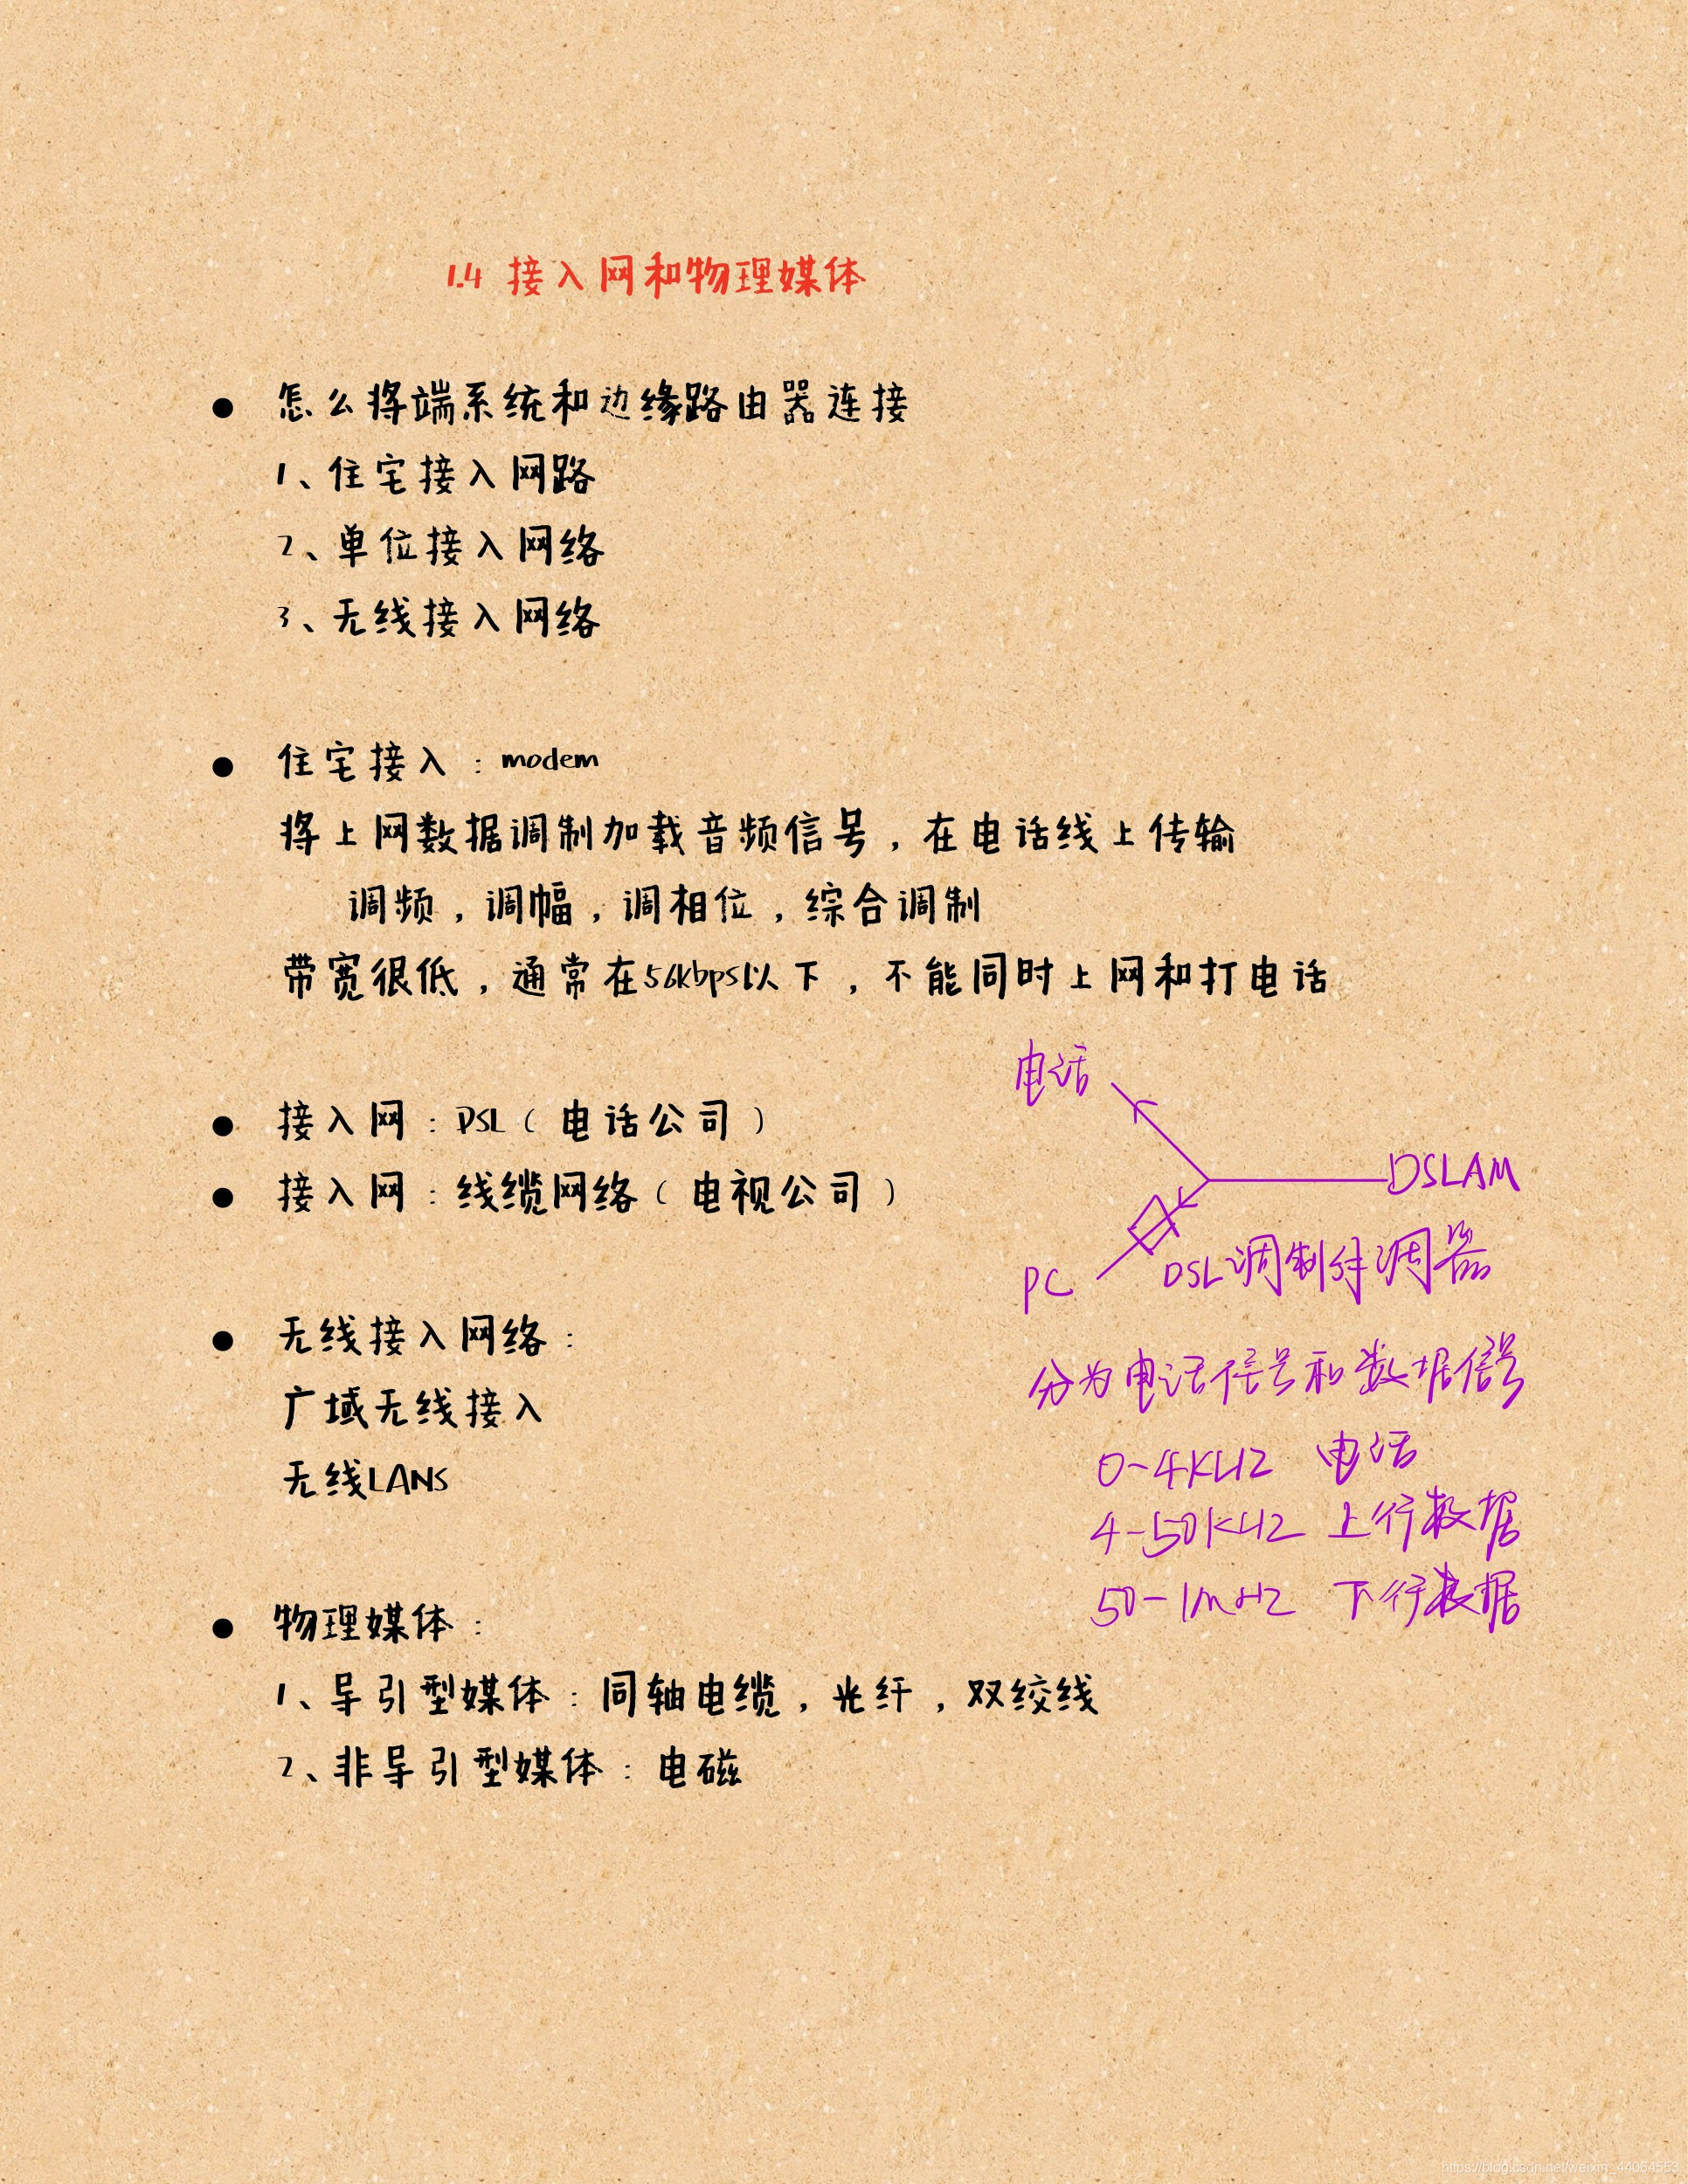 1.4 接入网和物理媒体
● 怎么将端系统和边缘路由器连接
1、住宅接入网路
2、单位接入网络
3、无线接入网络
● 住宅接入：modem
将上网数据调制加载音频信号，在电话线上传输
调频，调幅，调相位，综合调制
带宽很低，通常在56kbps以下，不能同时上网和打电话
● 接入网：DSL（电话公司）
● 接入网：线缆网络（电视公司）
电话
DSLAM
PC
DSL调制解调器
分为电话信号和数据信号
0-4KHZ 电话
4-50KHZ 上行数据
50-1MHZ 下行数据
● 无线接入网络：
广域无线接入
无线LANS
● 物理媒体：
1、导引型媒体：同轴电缆，光纤，双绞线
2、非导引型媒体：电磁
https://blog.csdn.net/weixin_44064553